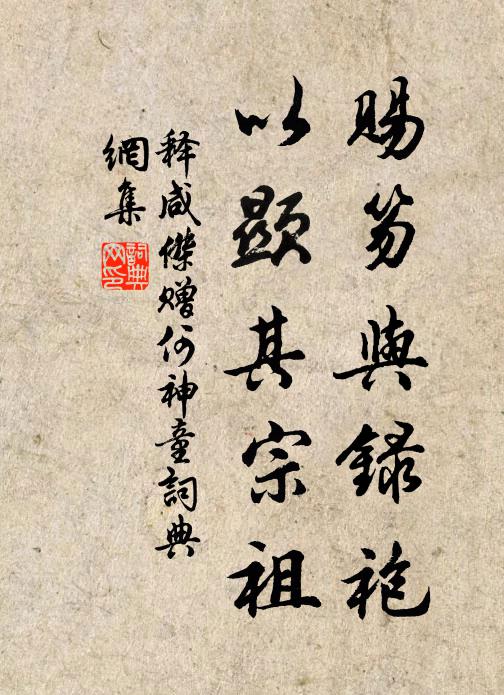 賜笏與録袍
以顕其宗祖
释咸傑贈何神童詞典
網集
詞典
网印